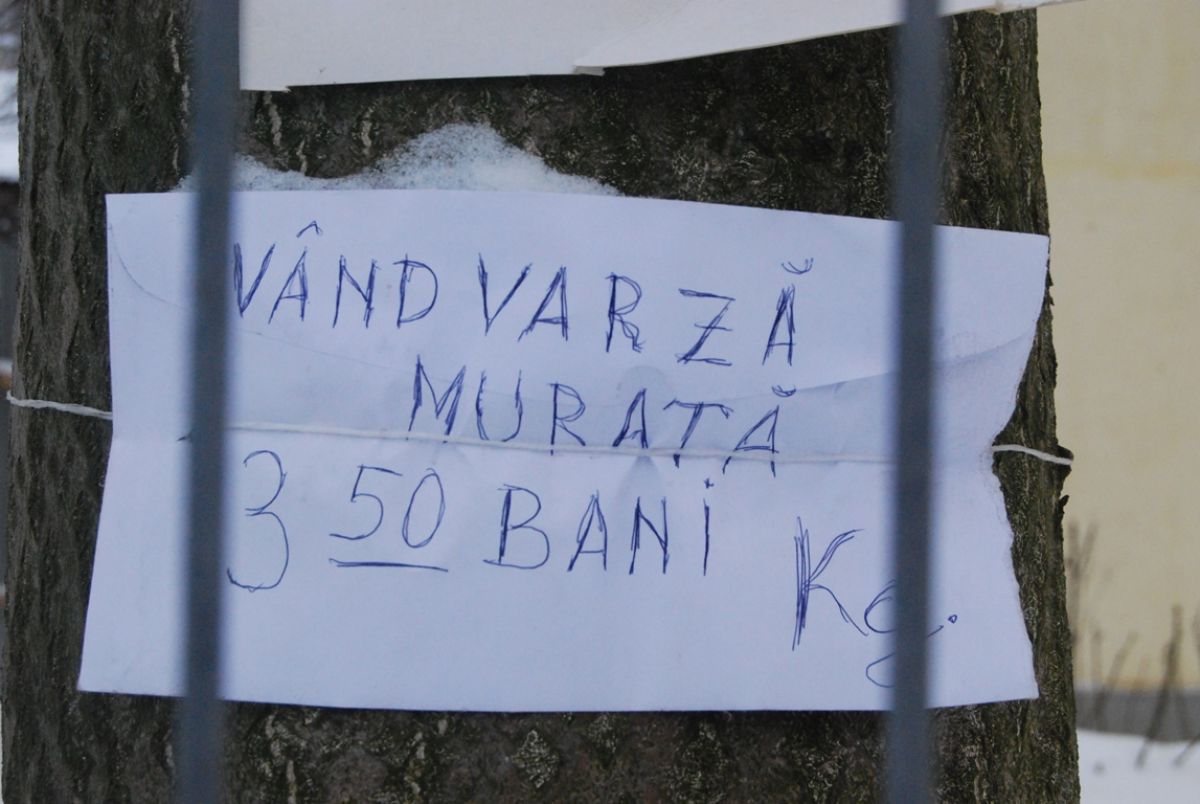 VÂND VARZĂ
MURATĂ
3 50 BANI Kg.